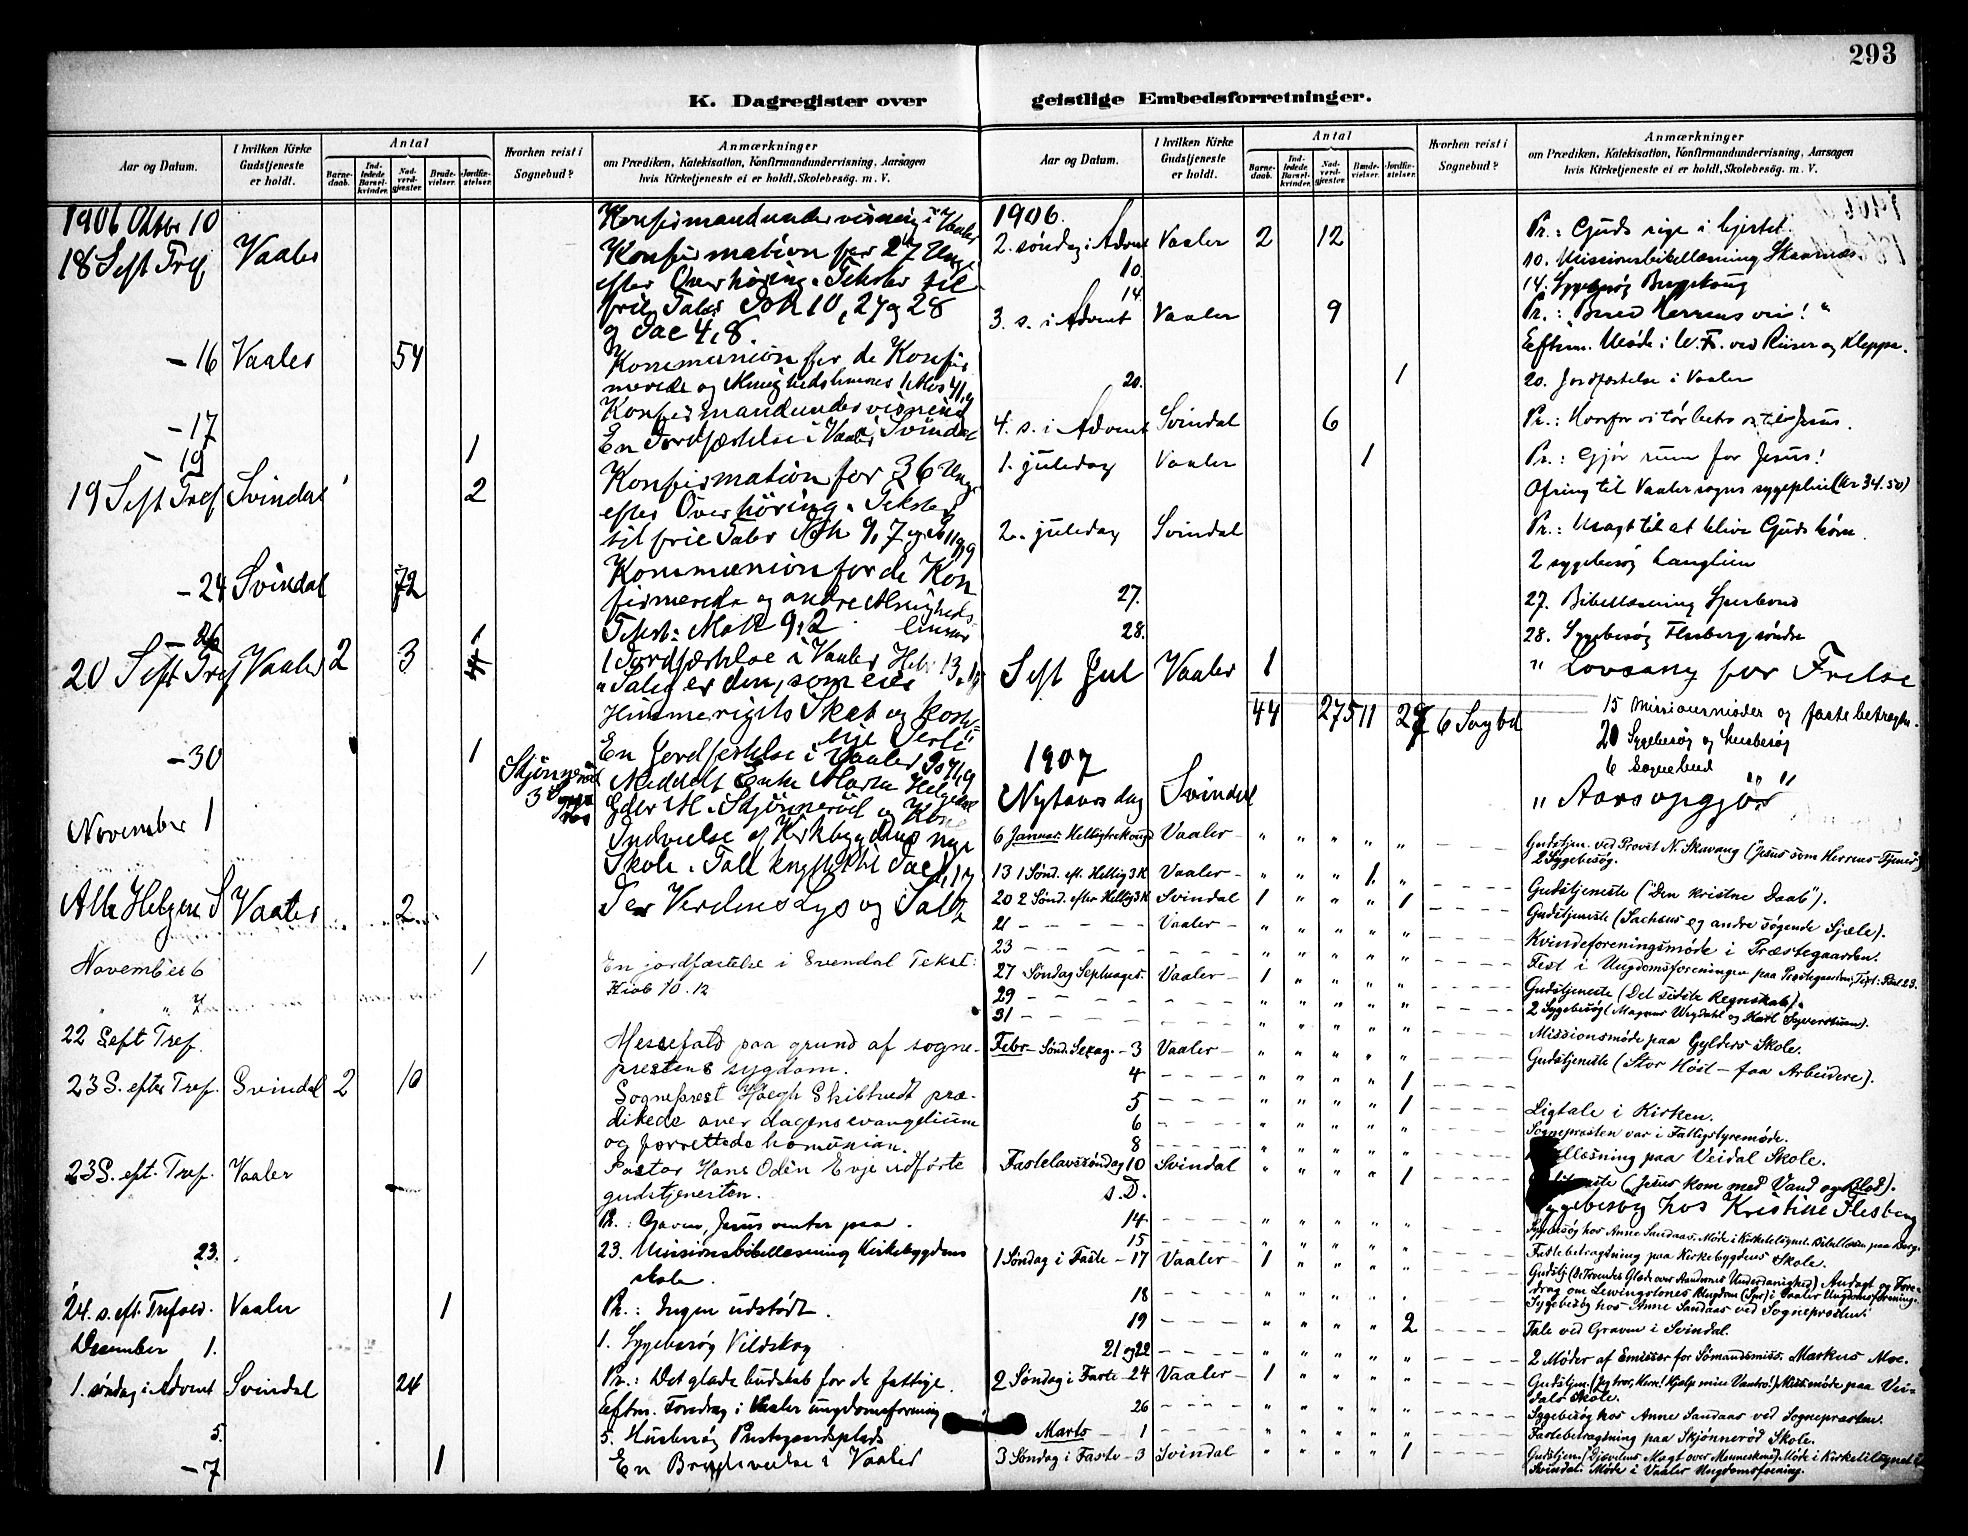 293
K. Dagregister over
Aar og Datum.
I hvilken Kirke Gudstjeneste er holdt.
Antal
Barnedaab.
Indledede Barselkvinder.
Nadverdgjester.
Brudevielser.
Jordfæstelser.
Hvorhen reist i Sognebud?
Anmærkninger
om Prædiken, Katekisation, Konfirmandundervisning, Aarsagen
hvis Kirketjeneste ei er holdt, Skolebesøg. m. V.
1906 Oktbr 10 Konfirmandundervisning i Vaaler
18 S eft Tref Vaaler Konfirmation for 27 Unge
efter Overhøring. Tekster til
frie Taler Joh 10, 27 og 28
og Jac 4,8.
- 16 Vaaler 54 Kommunion for de Konfir
merede og Menighedslemmer
- 17 Konfirmandundervisning
i Svindal
- 19 1 En Jordfæstelse i Vaaler
19 S eft Tref Svindal 2 Konfirmation for 36 Unge
efter Overhøring. Tekster
til frie Taler
- 24 Svindal 72 Kommunion for de Kon
firmerede og andre Menigheds-
lemmer
Tekst: Math 9,2
- 26 1 Jordfæstelse i Vaaler
20 S eft Tref Vaaler 2 3 "Salig er den, som eier
Himmerigets Skat og koste-
lige Perle"
- 30 1 Skjønnerød En Jordfæstelse i Vaaler
Meddelt Enke Maren Helgesen
Eder H. Skjønnerød og Kone
November 1 Indvielse af Kirkbygdens nye
Skole. Tale knyttet til Jac 1,17
Alle Helgen S Vaaler 2 Jer Verdens Lys og Salt
November 6 1 En jordfæstelse i Svendal Tekst:
" 7 Hiob 10.12
22 S eft Tref. Messefald paa grund af sogne-
prestens sygdom.
23 S. efter Tref. Svindal 2 10 Sogneprest Høegh Skibtvedt præ-
dikede over dagens evangelium
og forrettede komunion.
23 S. eft. Tref. Vaaler Pastor Hans Odin Evje udførte
gudstjenesten.
Pr.: Gaven, Jesus venter paa.
23. 23. Missionsbibellæsning Kirkebygdens
skole.
24. s. eft. Trefold. Vaaler 1 Pr.: Ingen udstødt.
December 1. 1. Sygebesøg Vildskog
1. søndag i Advent Svindal 24 Pr.: Det glade budskab for de fattige.
Eftm. Foredrag i Vaaler ungdomsforening
5. 5. Husbesøg Prestegaardsplads
- 7 1 En Brudevielse i Vaaler
geistlige Embedsforretninger.
Aar og Datum.
I hvilken Kirke Gudstjeneste er holdt.
Antal
Barnedaab.
Indledede Barselkvinder.
Nadverdgjester.
Brudevielser.
Jordfæstelser.
Hvorhen reist i Sognebud?
Anmærkninger
om Prædiken, Katekisation, Konfirmandundervisning, Aarsagen
hvis Kirketjeneste ei er holdt, Skolebesøg. m. V.
1906.
2. søndag i Advent Vaaler 2 12 Pr.: Guds rige i hjertet.
10. 10. Missionsbibellæsning Skaarnæs
14. 14. Sygebesøg
3. s. i Advent Vaaler 9 Pr.: "Bered Herrens vei!"
Eftm. Møde i U.F. ved Riiser og Kleppe.
20. 1 20. Jordfæstelse i Vaaler
4. s. i Advent Svindal 6 Pr.: Hvorfor vi tør betro os til Jesus.
1. juledag Vaaler 1 Pr.: Gjør rum for Jesus!
Ofring til Vaaler sogns sygepleie (kr 34.50)
2. juledag Svindal Pr.: Magt til at blive Guds børn.
2 sygebesøg Langlien
27. 27. Bibellæsning Sperbund
28. 28. Sygebesøg Flesberg søndre
S eft Jul Vaaler 1 " Lovsang for Frelse
44 275 11 29 6 Sognbd 15 Missionsmøder og fastebetragtn.
20 Sygebesøg og husbesøg
6 Sognebud
1907
Nytaarsdag Svindal " Aarsopgjør"
6 Januar: Helligtrekonged Vaaler - " " " " " Gudstjen. ved Provst N. Skavang ("Jesus som Herrens Tjener")
2 Sygebesøg.
13 1 Sønd. eft. Hellig 3 K Vaaler - " " " 1 " Gudstjeneste ("Den kristne Daab").
20 2 Sønd. efter Hellig 3 K Svindal 1 " " " 1 Gudstjeneste (Sachæus og andre søgende Sjæle).
21 - - - - Vaaler - " " " " " Kvindeforeningsmøde i Præstegaarden.
23 - - - - " " " " " Fest i Ungdomsforeningen paa Præstegaarden; Text: Psal 23.
27 Søndag Septuages. Vaaler - 1 " " " " Gudstjeneste (Det sidste Regnskab).
29 - - - - " " " " " 2 Sygebesøg (Magnus Vegdahl og Karl Syversteen).
31 - - - - " " " " " Missionsmøde paa Gylders Skole.
Febr - Sønd. Sexag. - 3 Vaaler - " " " " " Gudstjeneste (Stor Høst - faa Arbeidere).
4 - - - - " " " " 1
5 - - - - " " " " 1 Ligtale i Kirken.
6 - - - - " " " " " Sognepræsten var i Fattigstyremøde.
8 - - - - " " " " " læsning paa Veidal Skole.
Fastelavssøndag 10 Svindal " " " " 1 (Jesus kom med Vand og Blod).
s. D. Sygebesøg hos Kristine Flesberg
14 - - - - " " " " " Sygebesøg hos Anne Sandaas.
15 - - - - " " " " " Fastebetragtning paa Kirkebygdens Skole.
1 Søndag i Faste - 17 Vaaler - 1 " " " " Gudstj (De Troendes Glæde over Aandernes Underdanighed) Andagt og Fore-
drag om Livingstones Ungdom (Spr) i Vaaler Ungdomsforening.
18 - - - - " " " " " Sygebesøg hos Anne Sandaas ved Sognepræsten.
19 - - - - " " " " 2 Tale ved Graven i Svindal.
21 og 22 - - " " " " " 2 Møder af Emissær for Sømandsmiss. Markus Moe.
2 Søndag i Faste - 24 Vaaler - 1 " " " " Gudstjen. (Jeg tror, Herre! Hjælp min Vantro!) Missmøde paa Vei-
dals Skole.
26 - - - " " " " " Sygebesøg hos Anne Sandaas ved Sognepræsten.
Marts - 1 - - - " " " " " Fastebetragtning paa Skjønnerød Skole.
3 Søndag i Faste - 3 Svindal " " " " 1 Gudstjen. (Djævelens Magt over Mennesken) Møde i Kirketilsynet i
Svindal. Møde i Vaaler Ungdomsforening.